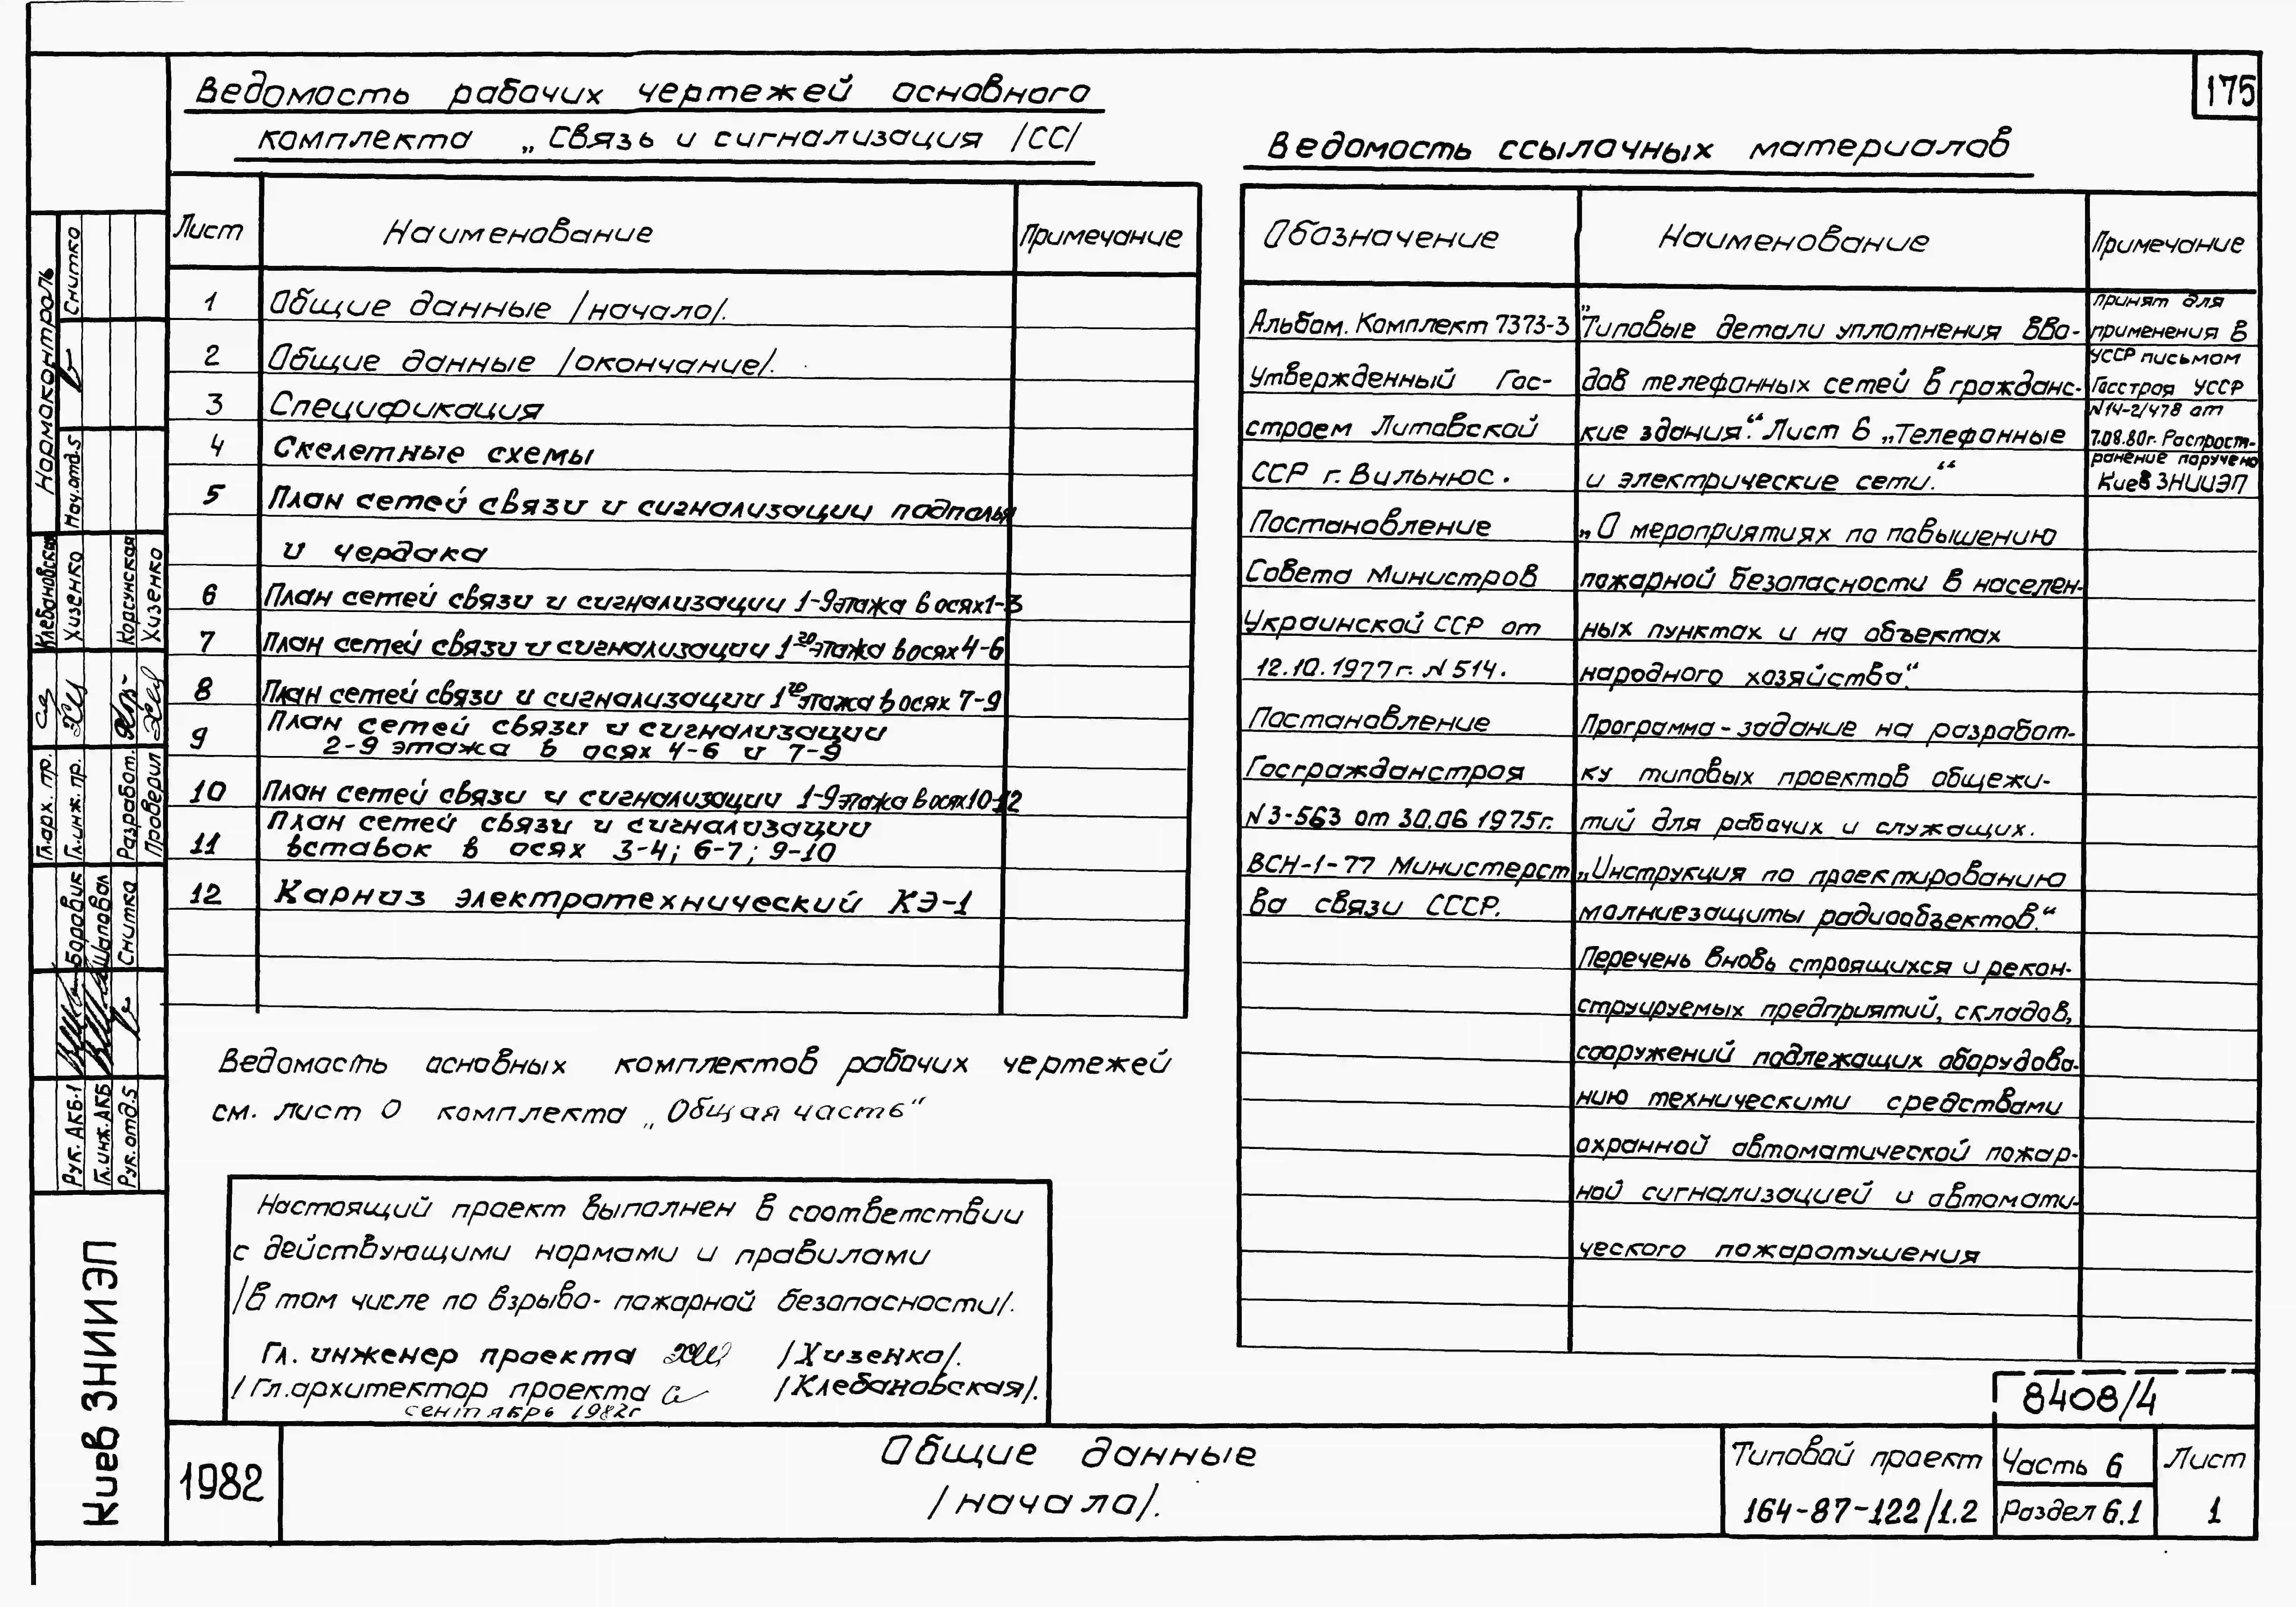 175
Ведомость рабочих чертежей основного
комплекта „Связь и сигнализация /СС/
Лист Наименование Примечание
1 Общие данные /начало/.
2 Общие данные /окончание/.
3 Спецификация
4 Скелетные схемы
5 План сетей связи и сигнализации подполья
и чердака
6 План сетей связи и сигнализации 1-9 этажа в осях 1-3
7 План сетей связи и сигнализации 1го этажа в осях 4-6
8 План сетей связи и сигнализации 1го этажа в осях 7-9
9 План сетей связи и сигнализации
2-9 этажа в осях 4-6 и 7-9
10 План сетей связи и сигнализации 1-9 этажа в осях 10-12
11 План сетей связи и сигнализации
вставок в осях 3-4; 6-7; 9-10
12 Карниз электротехнический КЭ-1
Ведомость основных комплектов рабочих чертежей
см. лист О комплекта „Общая часть“
Настоящий проект выполнен в соответствии
с действующими нормами и правилами
/в том числе по взрыво- пожарной безопасности/.
Гл. инженер проекта /Хизенко/.
/Гл. архитектор проекта /Клебановская/.
сентябрь 1982г
Ведомость ссылочных материалов
Обозначение Наименование Примечание
Альбом. Комплект 7373-3
Утвержденный Гос-
строем Литовской
ССР г. Вильнюс.
„Типовые детали уплотнения вво-
дов телефонных сетей в гражданс-
кие здания“. Лист 6 „Телефонные
и электрические сети.“
принят для
применения в
УССР письмом
Госстроя УССР
N14-2/478 от
7.08.80г. Распрост-
ранение поручено
Киев ЗНИИЭП
Постановление
Совета Министров
Украинской ССР от
12.10.1977г. N 514.
„О мероприятиях по повышению
пожарной безопасности в населен-
ных пунктах и на объектах
народного хозяйства“.
Постановление
Госгражданстроя
N3-563 от 30.06 1975г.
Программа - задание на разработ-
ку типовых проектов общежи-
тий для рабочих и служащих.
ВСН-1-77 Министерст
ва связи СССР.
„Инструкция по проектированию
молниезащиты радиообъектов.“
Перечень вновь строящихся и рекон-
струируемых предприятий, складов,
сооружений подлежащих оборудова-
нию техническими средствами
охранной автоматической пожар-
ной сигнализацией и автомати-
ческого пожаротушения
8408/4
1982
Общие данные
/начало/.
Типовой проект
164-87-122/1.2
Часть 6
Раздел 6.1
Лист
1
Нормоконтроль
Снитко
Нач.отд.5
Клебановская
Хизенко
Корсунская
Хизенко
Гл.арх. пр.
Гл.инж. пр.
Разработ.
Проверил
Боровик
Шаповал
Снитко
Рук. АКБ-1
Гл.инж. АКБ
Рук.отд.5
Киев ЗНИИЭП